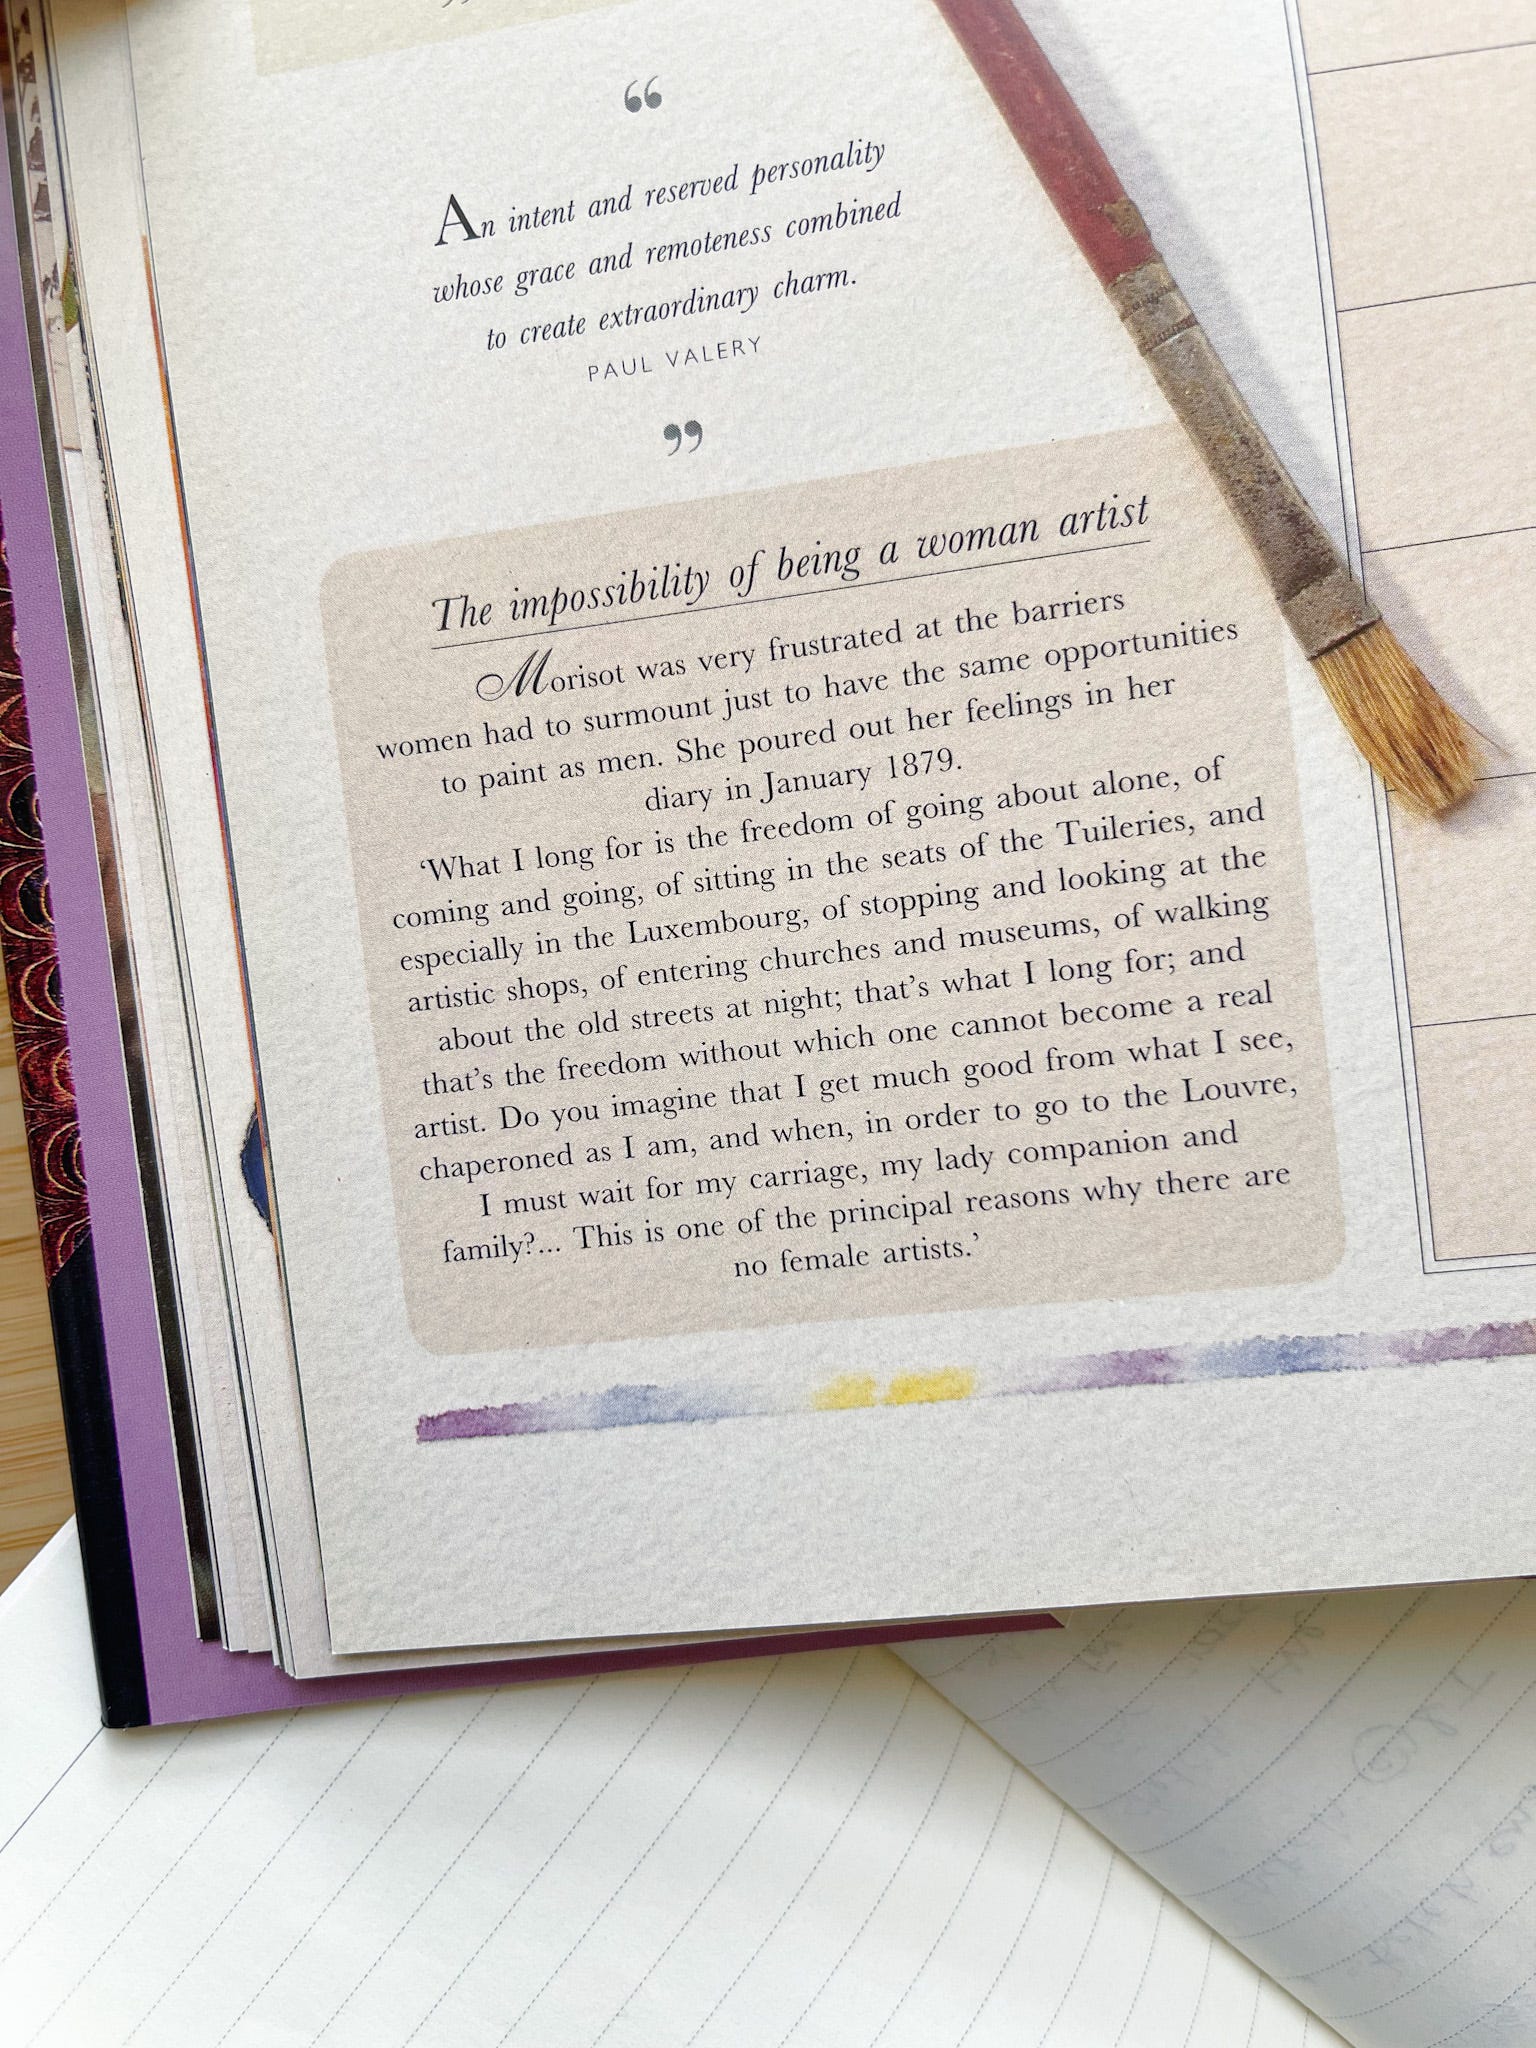 “
An intent and reserved personality
whose grace and remoteness combined
to create extraordinary charm.
PAUL VALERY
”
The impossibility of being a woman artist
Morisot was very frustrated at the barriers
women had to surmount just to have the same opportunities
to paint as men. She poured out her feelings in her
diary in January 1879.
‘What I long for is the freedom of going about alone, of
coming and going, of sitting in the seats of the Tuileries, and
especially in the Luxembourg, of stopping and looking at the
artistic shops, of entering churches and museums, of walking
about the old streets at night; that’s what I long for; and
that’s the freedom without which one cannot become a real
artist. Do you imagine that I get much good from what I see,
chaperoned as I am, and when, in order to go to the Louvre,
I must wait for my carriage, my lady companion and
family?... This is one of the principal reasons why there are
no female artists.’